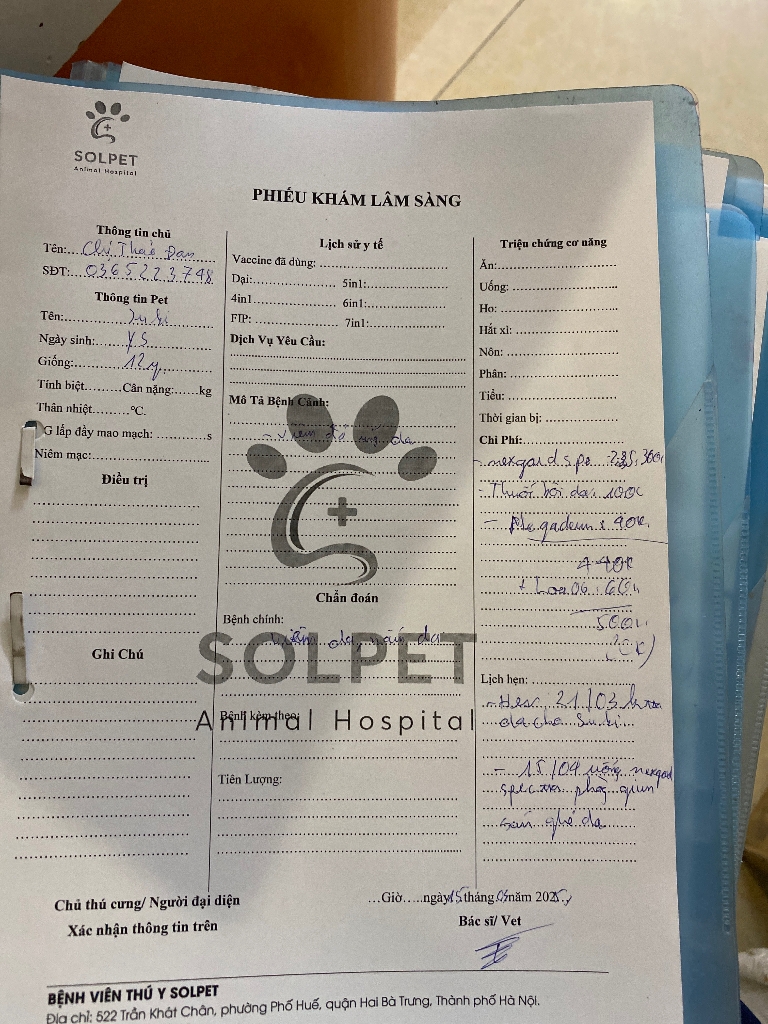 SOLPET
Animal Hospital
PHIẾU KHÁM LÂM SÀNG
Thông tin chủ
Tên:...Chị Thảo Đan
SĐT:...0365223798
Thông tin Pet
Tên:
Ngày sinh:...YS
Giống:...12y
Tính biệt.........Cân nặng:......kg
Thân nhiệt.........ºC.
G lấp đầy mao mạch: ............s
Niêm mạc:
Điều trị
Ghi Chú
Lịch sử y tế
Vaccine đã dùng:
Dại: 5in1:
4in1 6in1:
FIP: 7in1:
Dịch Vụ Yêu Cầu:
Mô Tả Bệnh Cảnh:
- viêm da da
Chẩn đoán
Bệnh chính:
viêm da, nấm da
SOLPET
Animal Hospital
Bệnh kèm theo:
Tiên Lượng:
Triệu chứng cơ năng
Ăn:
Uống:
Ho:
Hắt xì:
Nôn:
Phân:
Tiểu:
Thời gian bị:
Chi Phí:
- nexgard spe
- Thuốc bôi da: 100K
- Megaderm: 90K
440K
+ Loa 06: 60K
500K
(CK)
Lịch hẹn:
- Hẹn 21/03
da cho Su ki
- 15/04 uống nexgard
spectra phòng giun
sán ghẻ da
Chủ thú cưng/ Người đại diện
Xác nhận thông tin trên
...Giờ.....ngày 15 tháng 03 năm 2025
Bác sĩ/ Vet
BỆNH VIÊN THÚ Y SOLPET
Địa chỉ: 522 Trần Khát Chân, phường Phố Huế, quận Hai Bà Trưng, Thành phố Hà Nội.